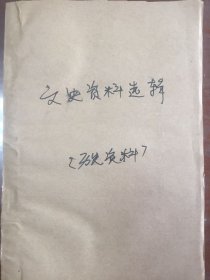 文史资料选辑
《㺯资料》